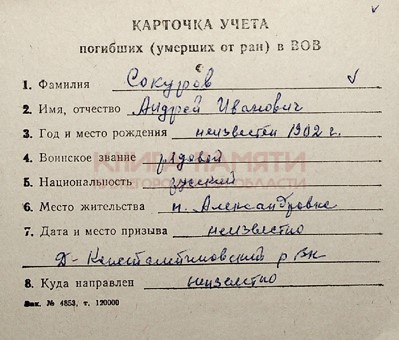 КАРТОЧКА УЧЕТА
погибших (умерших от ран) в ВОВ
1. Фамилия Сокуров
2. Имя, отчество Андрей Иванович
3. Год и место рождения неизвестен 1902 г.
4. Воинское звание рядовой
КНИГА ПАМЯТИ
5. Национальность русский
ОБЛАСТИ
6. Место жительства н. Александровка
7. Дата и место призыва неизвестно
Д-Константиновский р ВК
8. Куда направлен неизвестно
Зак. № 4853, т. 120000